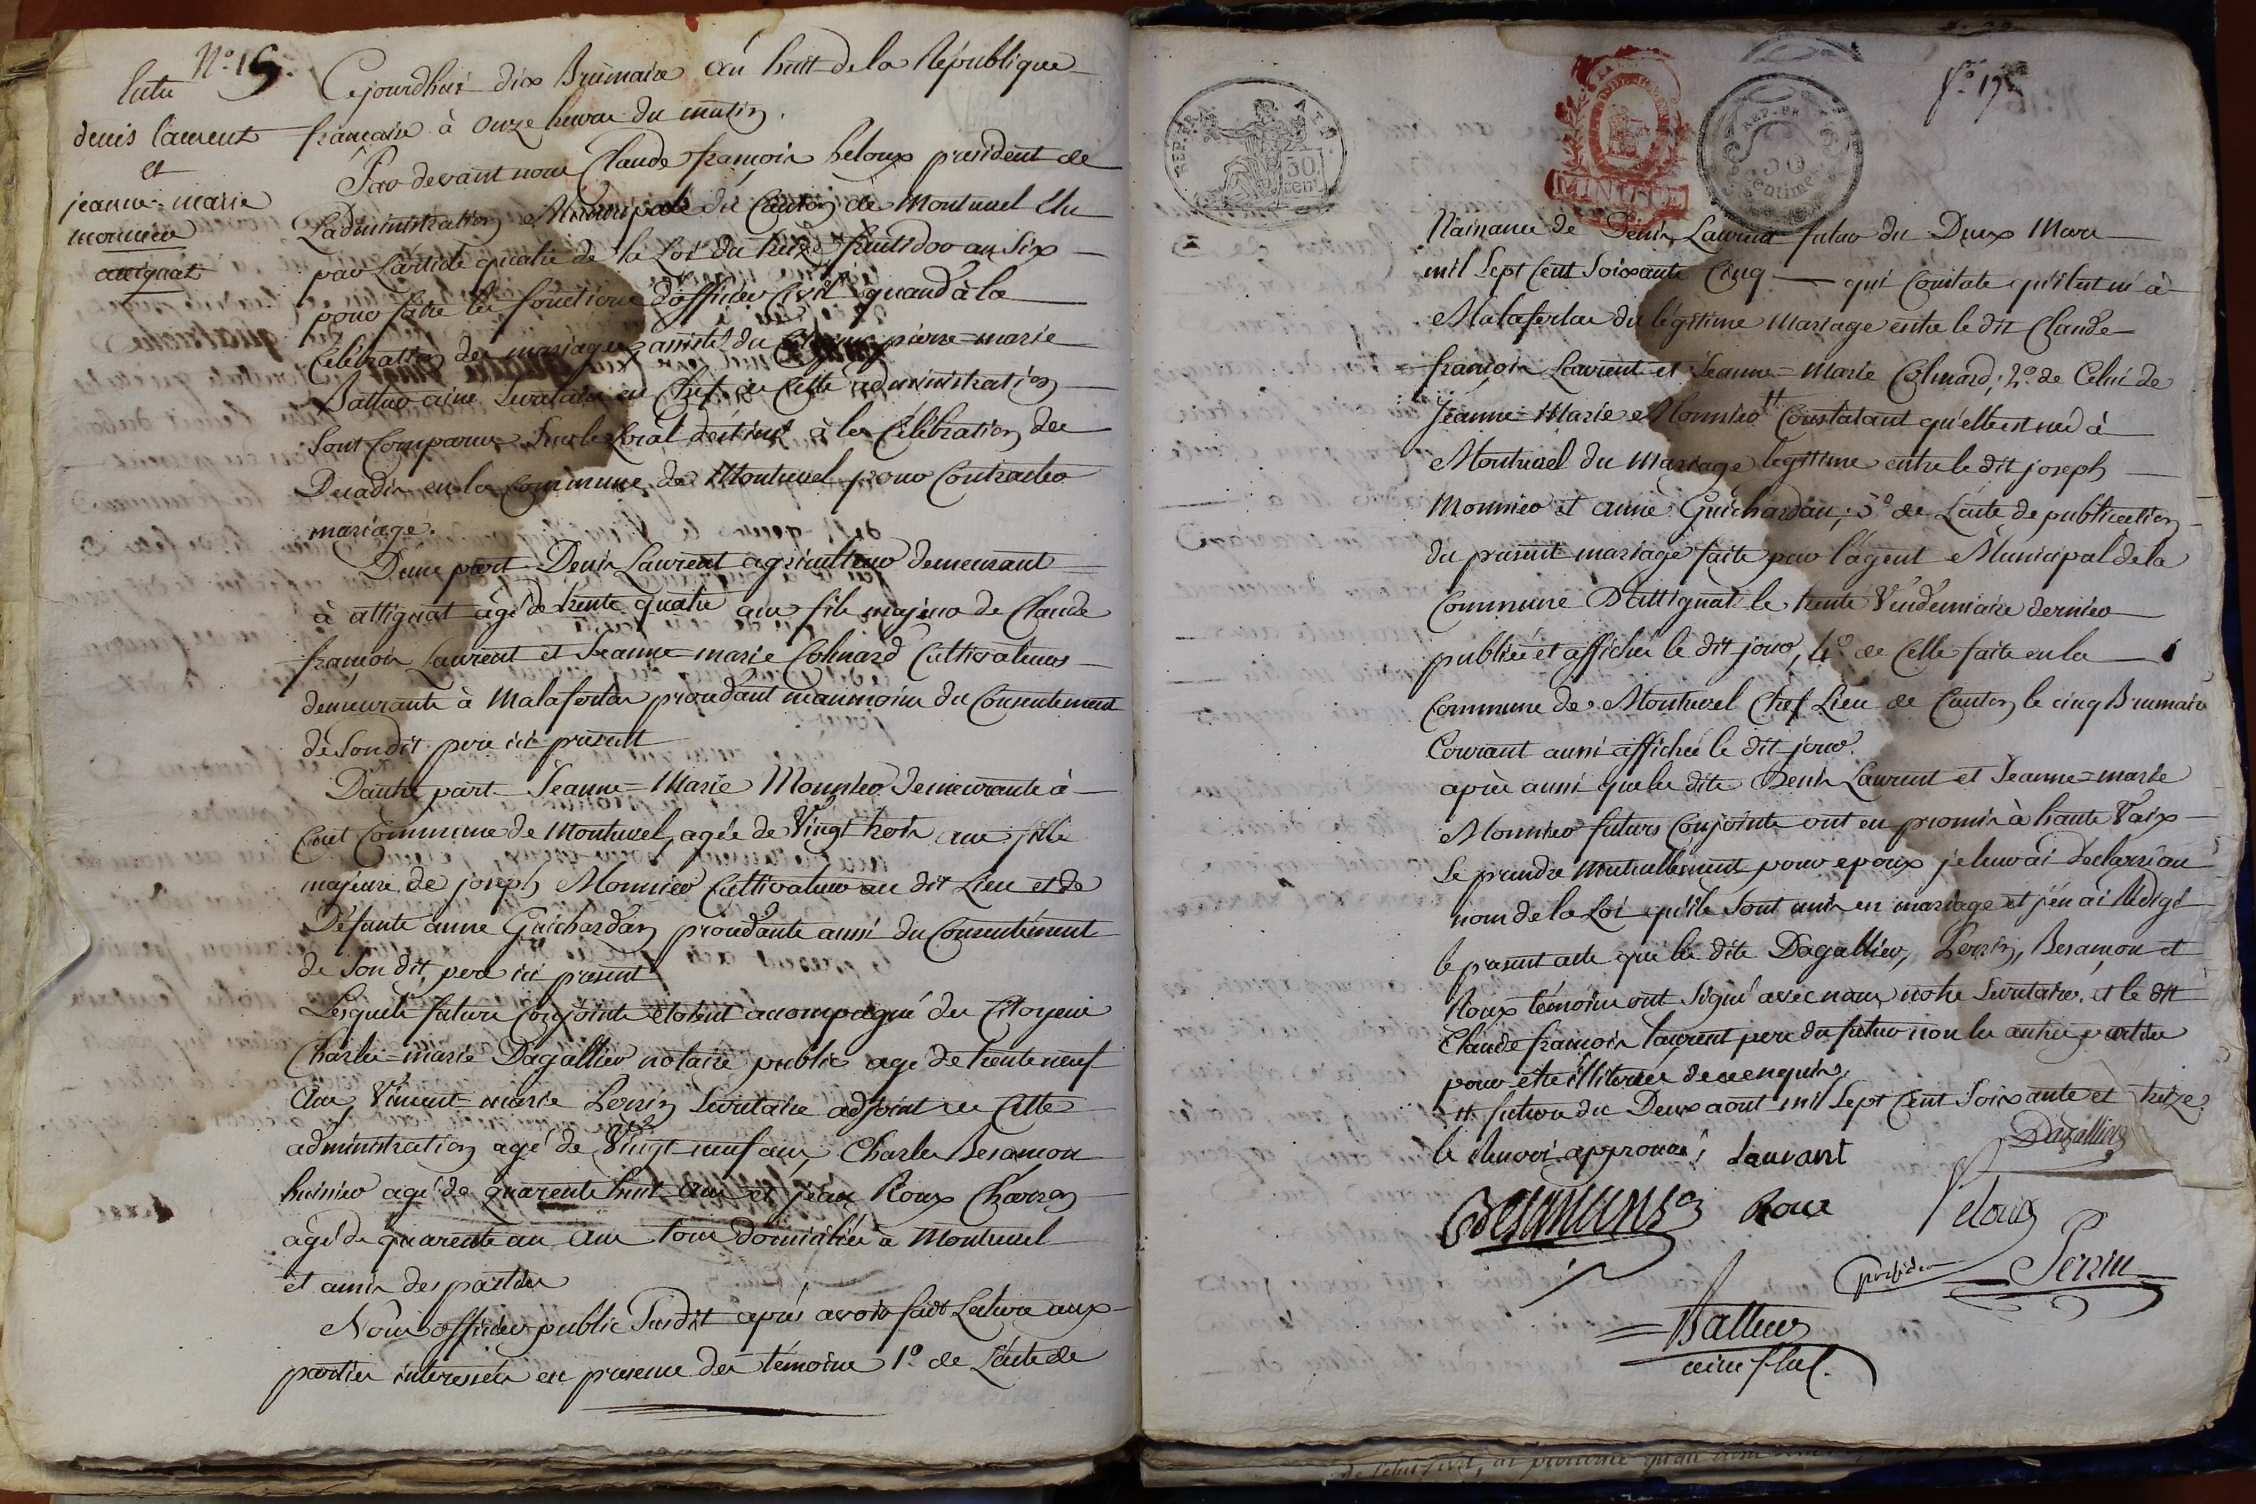 N.o 15.
Entre
denis laurent
et
jeanne-marie
monnier
attignat
Cejourdhui dix Brumaire an huit de la République
francaise à onze heures du matin.
Par devant nous Claude françois Veloux président de
L'administration Municipale du Canton de Montrevel Elu
par l'article quatre de la Loi du treize fructidor an Six
pour faire les fonctions d'officier Civil quand à la
Célébration des mariages, assisté du pierre=marie
Battur ainé Secretaire en Chef de cette administration
Sont Comparus Sur le Local déstiné à la Célébration des
Decadis en la Commune de Montrevel pour Contracter
mariage.
D'une part Denis Laurent agriculteur demeurant
à attignat agé de trente quatre ans fils majeur de Claude
françois Laurent et Jeanne=marie Colinard Cultivateurs
demeurants à Malafertas procédant néanmoins du Consentement
de Son dit pere ici présent
D'autre part Jeanne=Marie Monnier demeurante à
Cuet Commune de Montrevel, agée de Vingt trois ans fille
majeure de joseph Monnier Cultivateur au dit Lieu et de
Défunte anne Guichardan procédante aussi du Consentement
de Son dit pere ici présent
Lesquels futurs Conjoints etoient accompagné des Citoyens
Charles=marie Dagallier notaire public agé de trente neuf
ans, Vincent=marie Perrin Secretaire adjoint de Cette
administration agé de Vingt neuf ans, Charles Besançon
huissier agé de quarente huit ans et jean Roux Charron
agé de quarente un ans tous domiciliés à Montrevel
et amis des parties
Nous officier public Susdit après avoir fait Lecture aux
parties interessées en présence des témoins 1.o de L'acte de
REP. FR.
50 cent
MINUTE
REP. FR
50
centimes
f.o 17
Naissance de Denis Laurent futur du Deux Mars
mil Sept Cent Soixante Cinq qui Constate qu'il est né à
Malafertas du légitime Mariage entre le dit Claude
françois Laurent et Jeanne=Marie Colinard; 2.o de Celui de
Jeanne=Marie Monnier # Constatant qu'elle est née à
Montrevel du Mariage legitime entre le dit joseph
Monnier et anne Guichardan; 3.o de L'acte de publication
du présent mariage faite par l'agent Municipal de la
Commune D'attignat le trente Vendemiaire dernier
publiée et affichée le dit jour, 4.o de Celle faite en la
Commune de Montrevel Chef Lieu de Canton le cinq Brumaire
Courant aussi affichée le dit jour.
après aussi que les dits Denis Laurent et Jeanne=marie
Monnier futurs Conjoints ont eu promis à haute Vaix
Se prendre Mutuellement pour epoux je leur ai Declarré au
nom de la Loi qu'ils Sont unis en mariage et j'en ai Redigé
le présent acte que les dits Dagallier, Perrin, Besançon et
Roux témoins ont Signé avec nous, notre Secretaire, et le dit
Claude françois laurent pere du futur non les autres parties
pour être illitérées de ce enquis.
# future du Deux aout mil Sept Cent Soixante et treize.
le Renvoi approuvé. Laurant
Dagallier
CBesançon
Roux
Veloux
président
Perrin
Battur
ainé